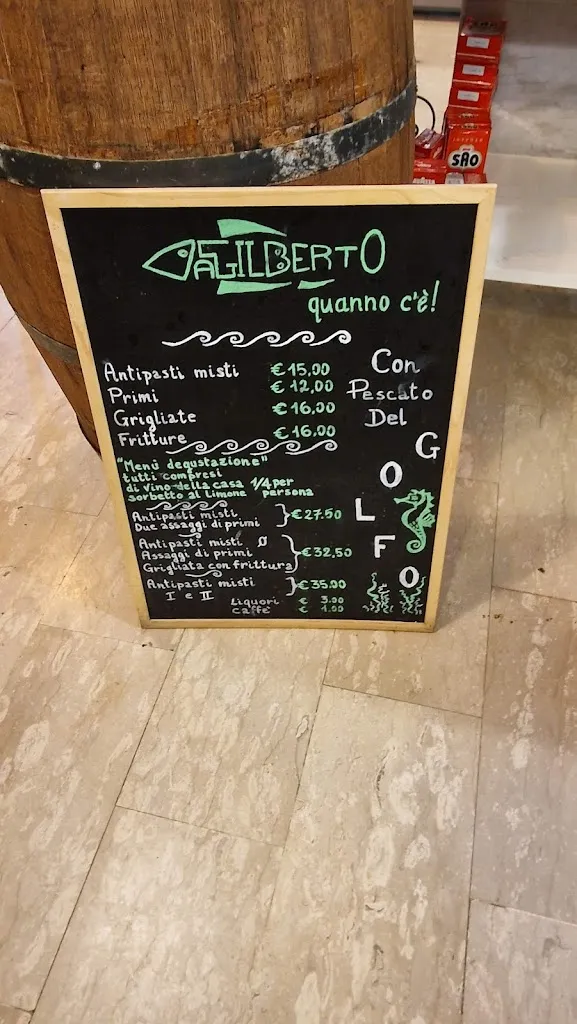 DA GILBERTO
quanno c'è!
Antipasti misti € 15,00
Primi € 12,00
Grigliate € 16,00
Fritture € 16,00
Con
Pescato
Del
GOLFO
"Menù degustazione"
tutti compresi
di vino della casa 1/4 per
sorbetto al limone persona
Antipasti misti
Due assaggi di primi } € 27.50
Antipasti misti
Assaggi di primi } € 32,50
Grigliata con frittura
Antipasti misti } € 35.00
I e II
Liquori € 3.00
caffè € 1.00
SAO
LAVAZZA